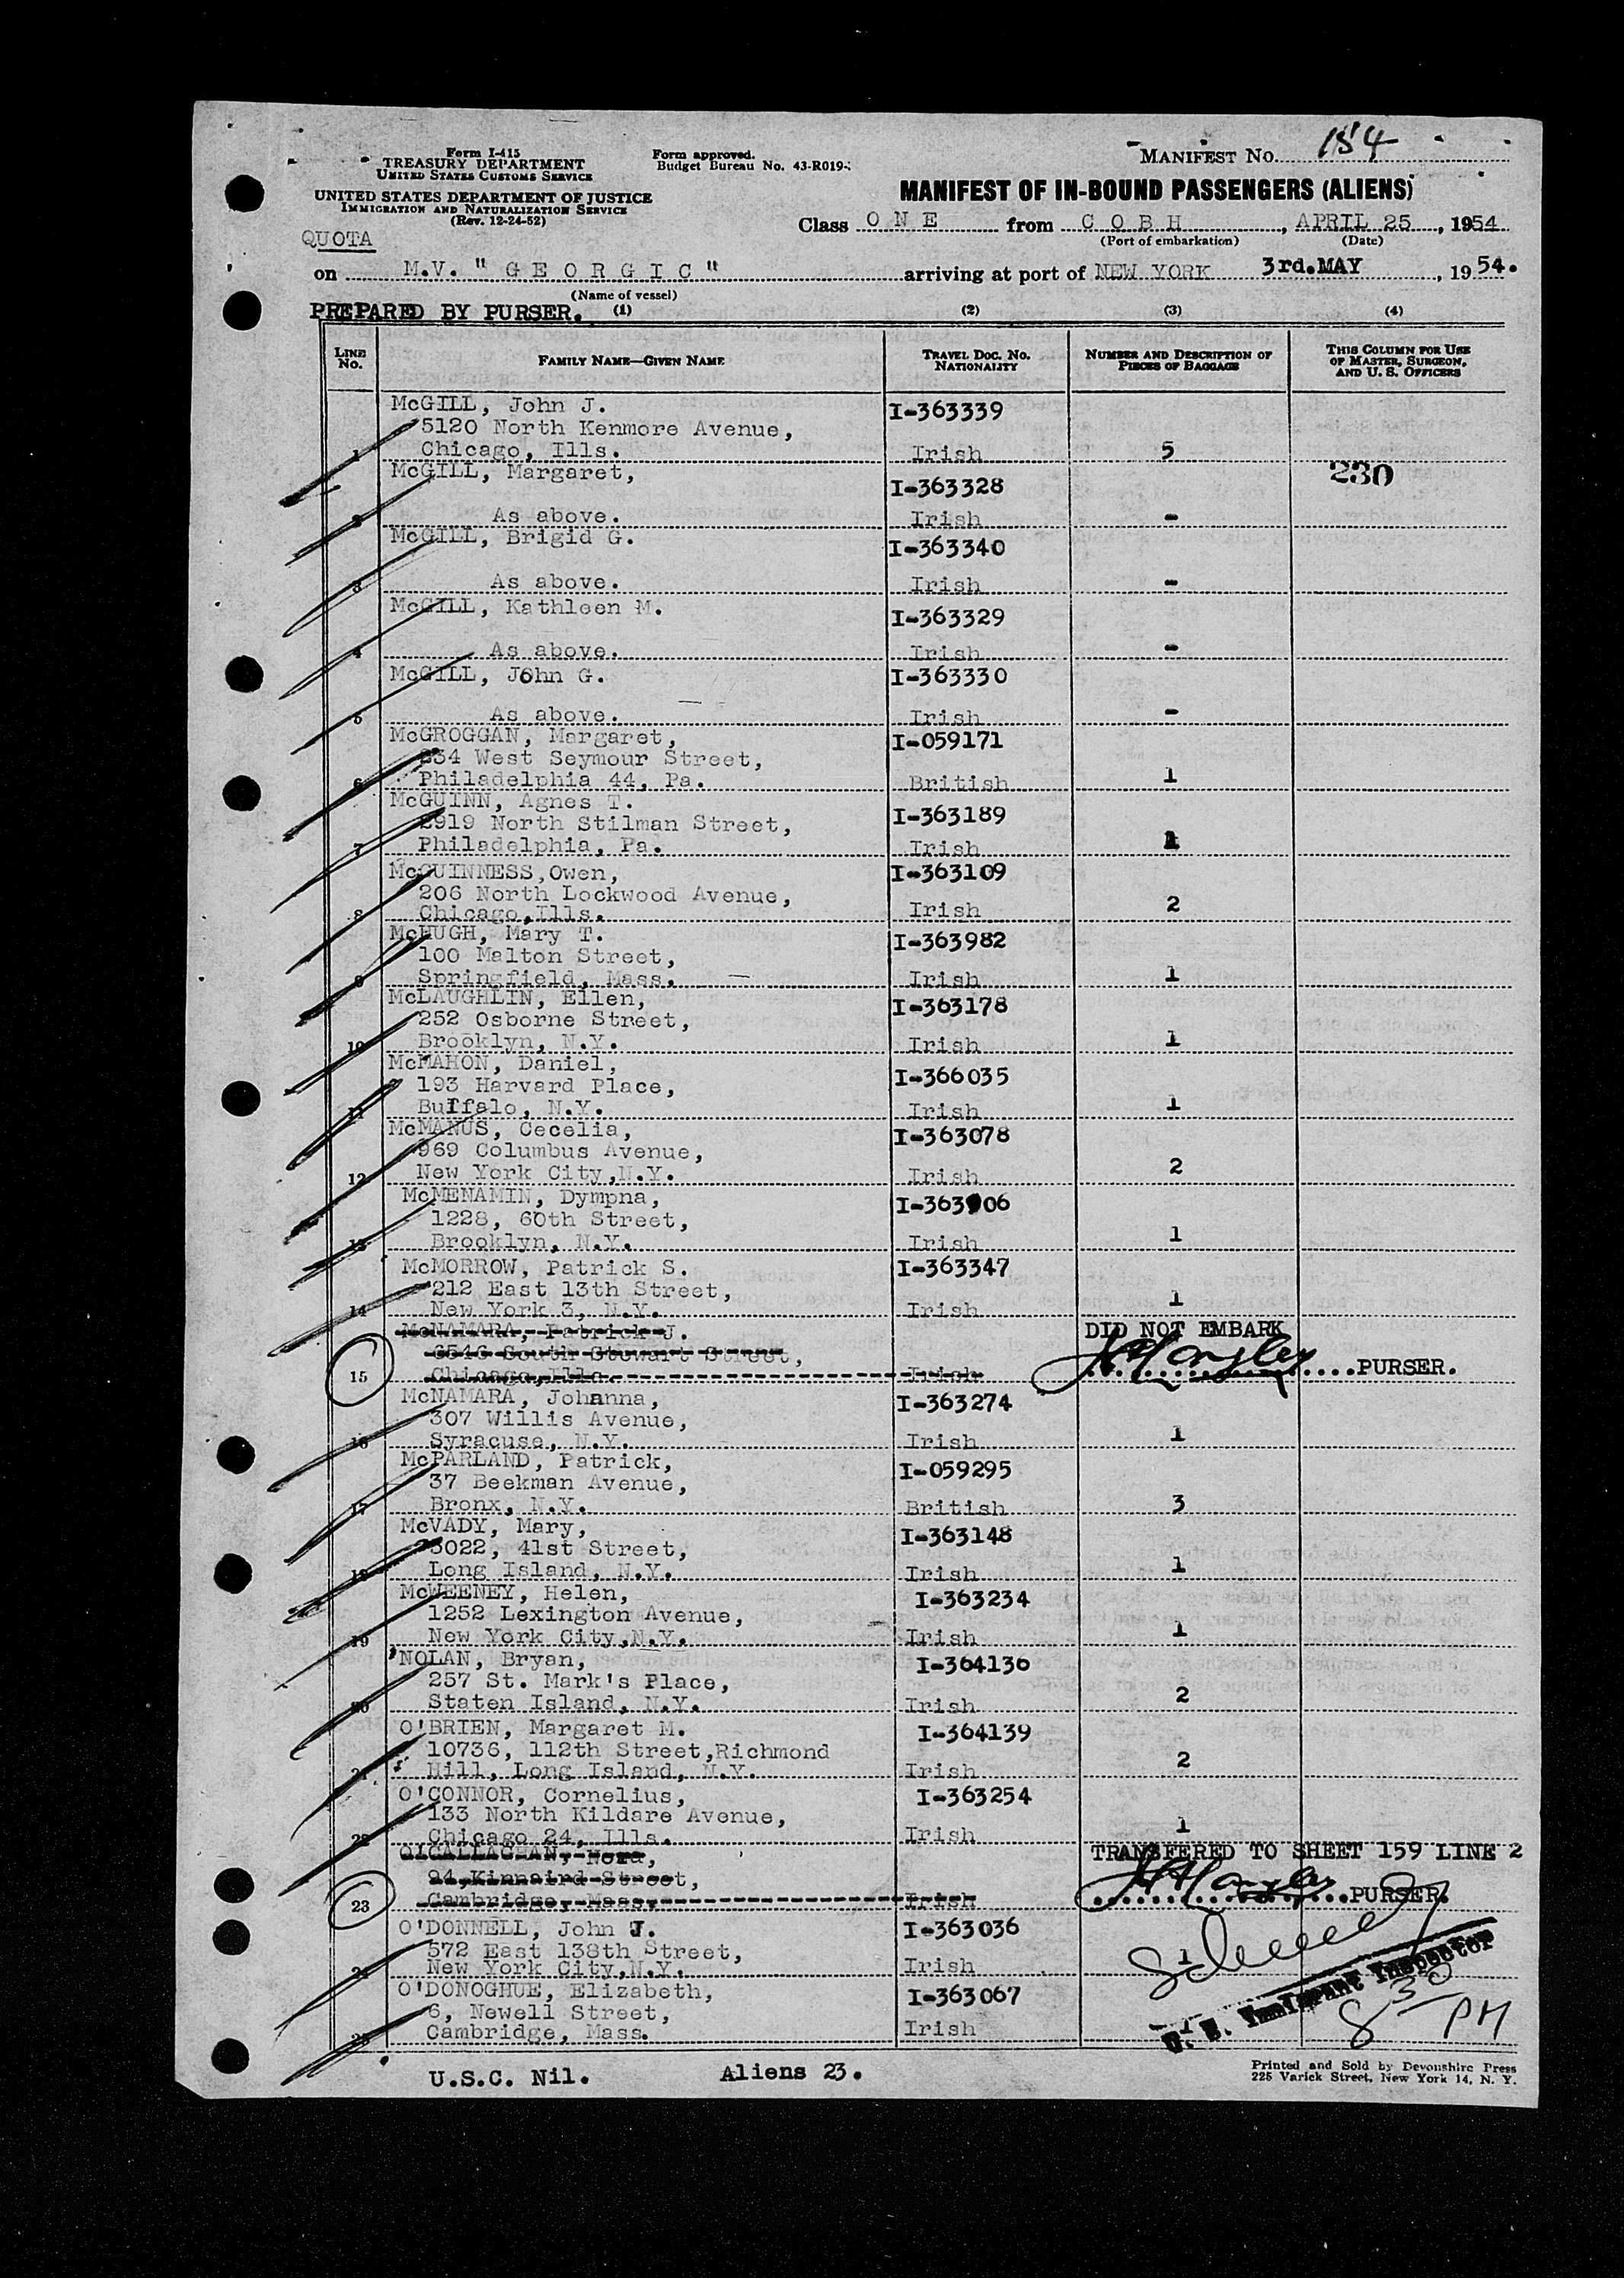 Form I-415
TREASURY DEPARTMENT
UNITED STATES CUSTOMS SERVICE
UNITED STATES DEPARTMENT OF JUSTICE
IMMIGRATION AND NATURALIZATION SERVICE
(Rev. 12-24-52)
Form approved.
Budget Bureau No. 43-R019-
MANIFEST NO. 154
MANIFEST OF IN-BOUND PASSENGERS (ALIENS)
Class O N E from C O B H, APRIL 25, 1954
(Port of embarkation) (Date)
QUOTA
on M.V. " G E O R G I C " arriving at port of NEW YORK 3rd.MAY, 1954.
(Name of vessel)
PREPARED BY PURSER. (1) (2) (3) (4)
LINE NO. FAMILY NAME—GIVEN NAME TRAVEL DOC. NO. NATIONALITY NUMBER AND DESCRIPTION OF PIECES OF BAGGAGE THIS COLUMN FOR USE OF MASTER, SURGEON, AND U. S. OFFICERS
McGILL, John J. I-363339
5120 North Kenmore Avenue,
1 Chicago, Ills. Irish 5
McGILL, Margaret, I-363328 230
2 As above. Irish -
McGILL, Brigid G. I-363340
3 As above. Irish -
McGILL, Kathleen M. I-363329
4 As above. Irish -
McGILL, John G. I-363330
5 As above. Irish -
McGROGGAN, Margaret, I-059171
234 West Seymour Street,
6 Philadelphia 44, Pa. British 1
McGUINN, Agnes T. I-363189
2919 North Stilman Street,
7 Philadelphia, Pa. Irish 1
McGUINNESS,Owen, I-363109
206 North Lockwood Avenue,
8 Chicago,Ills. Irish 2
McHUGH, Mary T. I-363982
100 Malton Street,
9 Springfield, Mass. Irish 1
McLAUGHLIN, Ellen, I-363178
252 Osborne Street,
10 Brooklyn, N.Y. Irish 1
McMAHON, Daniel, I-366035
193 Harvard Place,
11 Buffalo, N.Y. Irish 1
McMANUS, Cecelia, I-363078
969 Columbus Avenue,
12 New York City,N.Y. Irish 2
McMENAMIN, Dympna, I-363906
1228, 60th Street,
13 Brooklyn, N.Y. Irish 1
McMORROW, Patrick S. I-363347
212 East 13th Street,
14 New York 3, N.Y. Irish 1
McNAMARA, Patrick J. DID NOT EMBARK
6546 South Stewart Street,
15 Chicago,Ills. Irish PURSER.
McNAMARA, Johanna, I-363274
307 Willis Avenue,
16 Syracuse, N.Y. Irish 1
McPARLAND, Patrick, I-059295
37 Beekman Avenue,
17 Bronx, N.Y. British 3
McVADY, Mary, I-363148
3022, 41st Street,
18 Long Island, N.Y. Irish 1
McWEENEY, Helen, I-363234
1252 Lexington Avenue,
19 New York City,N.Y. Irish 1
NOLAN, Bryan, I-364136
257 St. Mark's Place,
20 Staten Island, N.Y. Irish 2
O'BRIEN, Margaret M. I-364139
10736, 112th Street,Richmond
21 Hill, Long Island, N.Y. Irish 2
O'CONNOR, Cornelius, I-363254
133 North Kildare Avenue,
22 Chicago 24, Ills. Irish 1
O'CALLAGHAN, Nora, TRANSFERED TO SHEET 159 LINE 2
94,Kinnaird Street,
23 Cambridge, Mass. Irish PURSER.
O'DONNELL, John J. I-363036
572 East 138th Street,
24 New York City,N.Y. Irish 1
O'DONOGHUE, Elizabeth, I-363067
6, Newell Street,
25 Cambridge, Mass. Irish
U. S. Immigrant Inspector
8 30 PM
U.S.C. Nil. Aliens 23.
Printed and Sold by Devonshire Press
225 Varick Street, New York 14, N. Y.